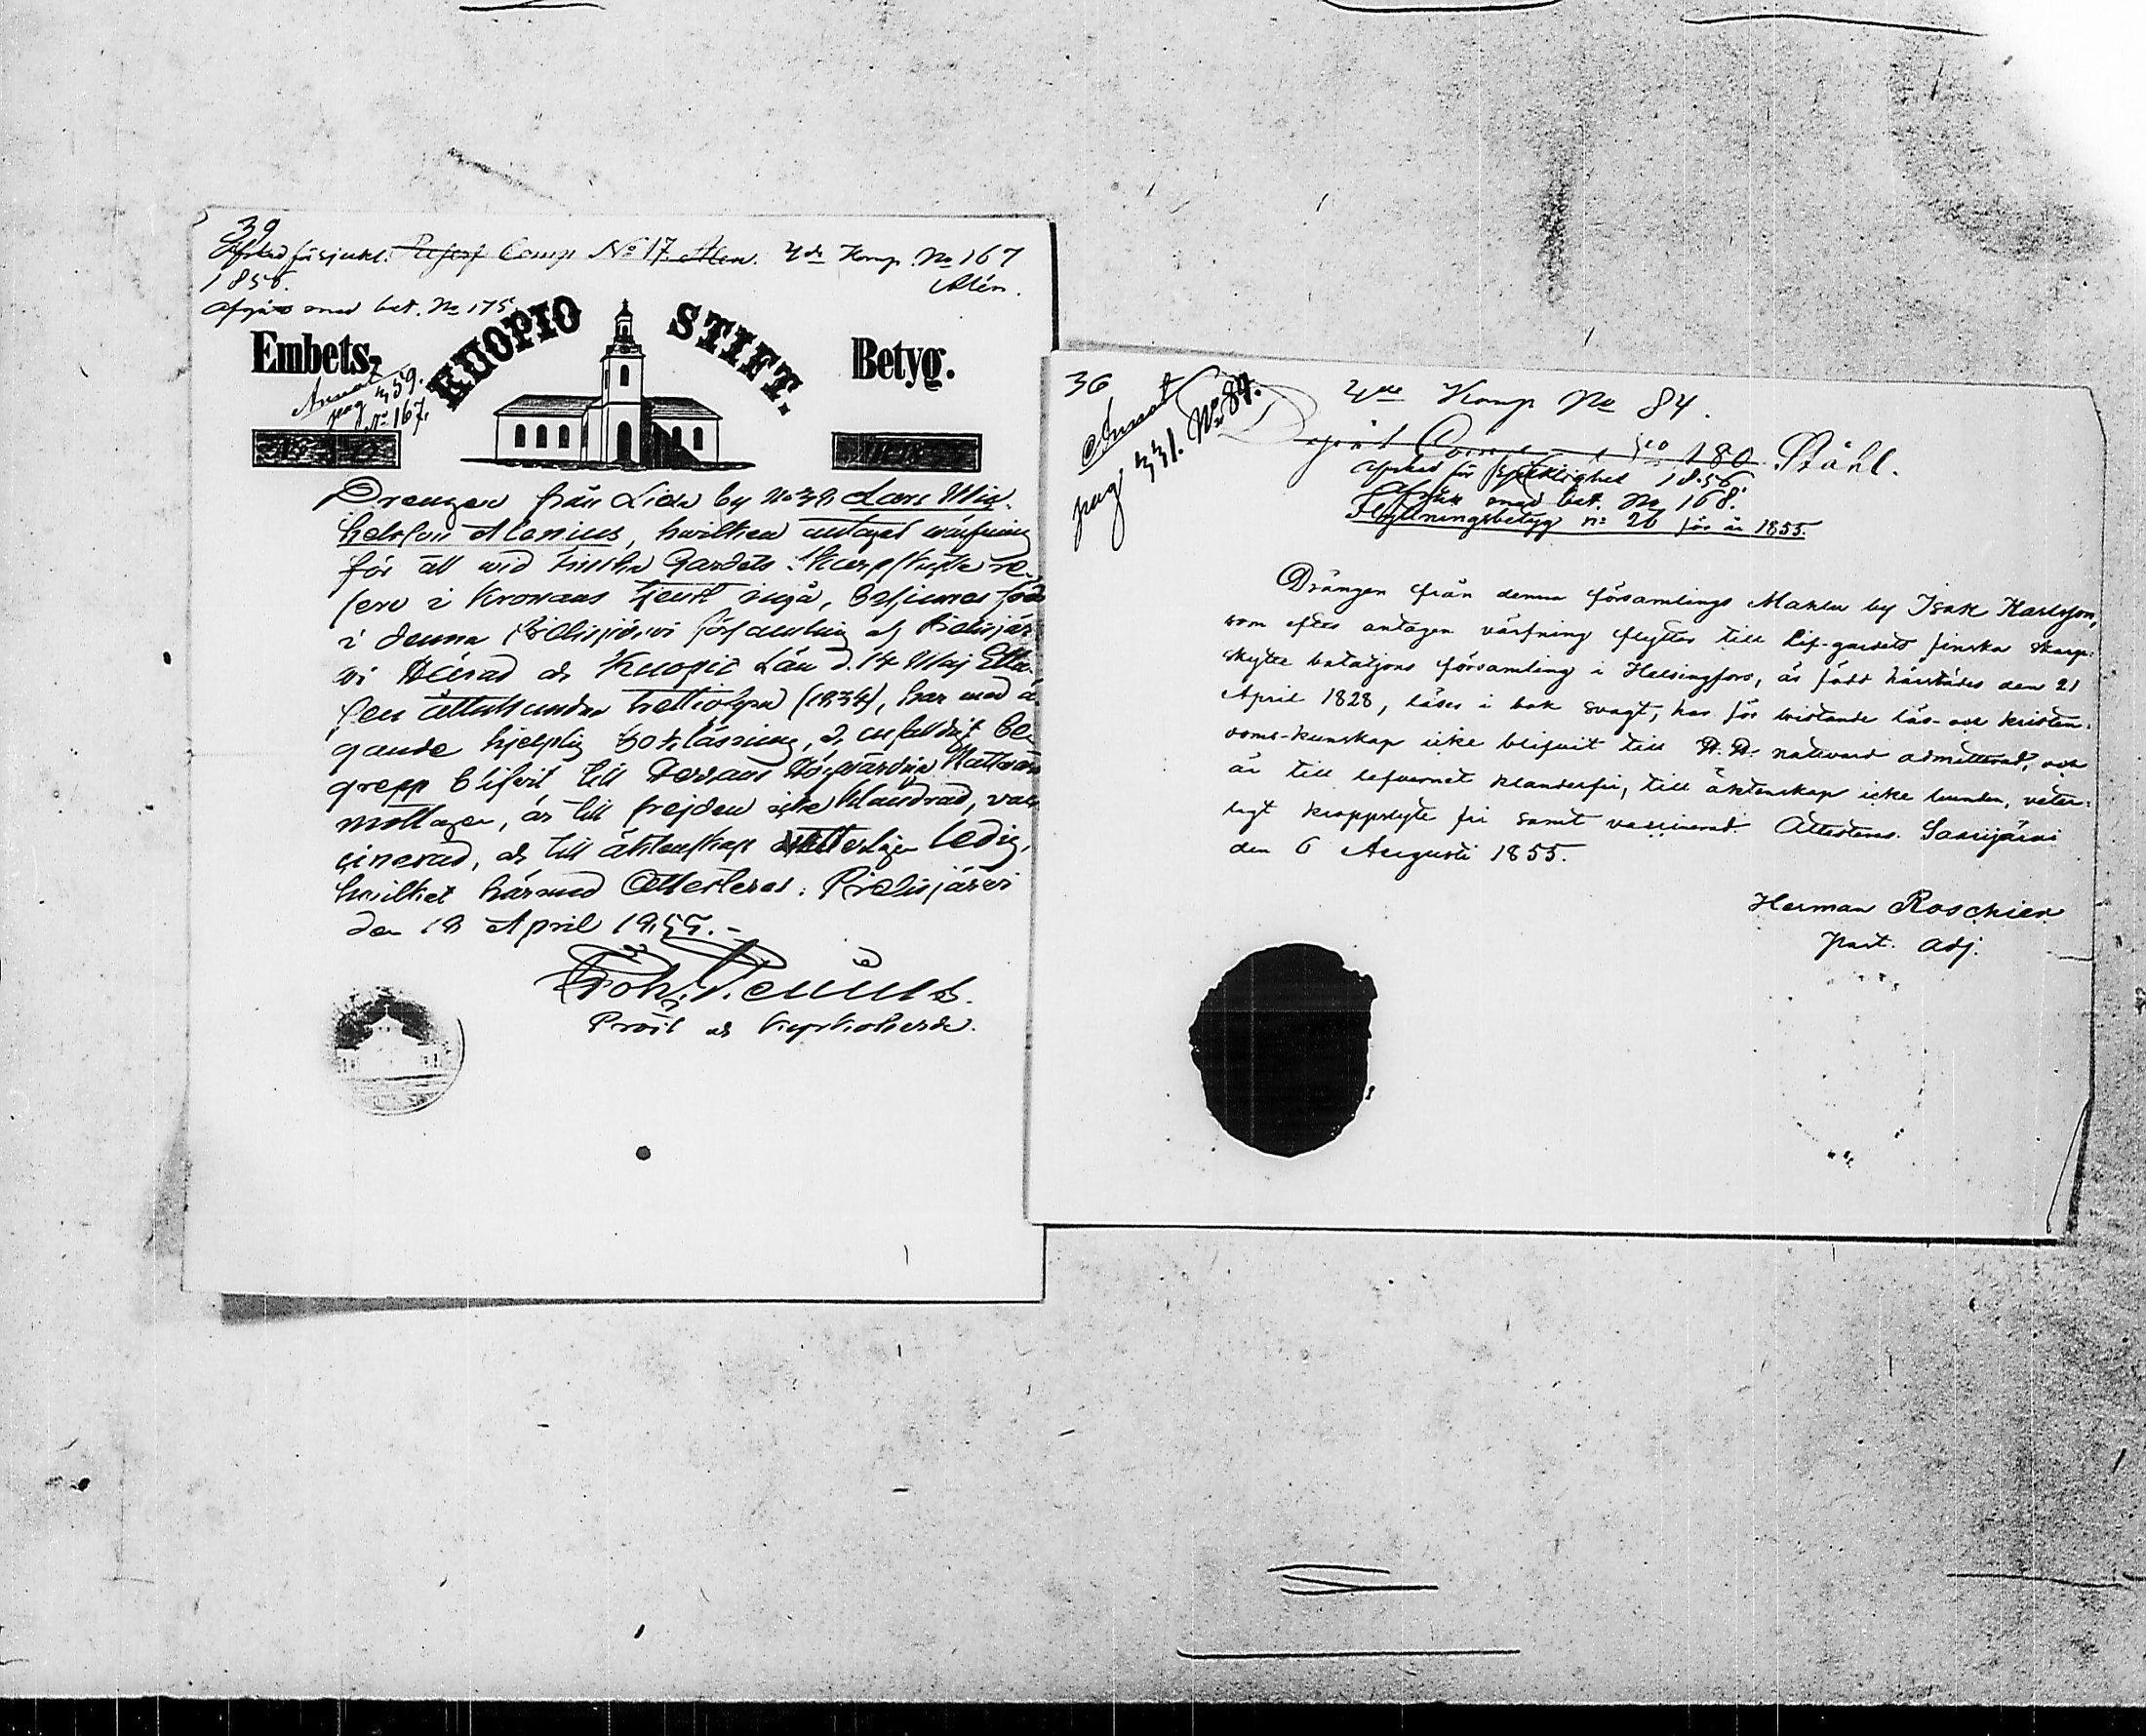 39
Afsked för sjukl. Reserf Comp No 17. Alen. 4de Komp. No 167
1856. Alén.
Afgår med bet. No 175
KUOPIO STIFT.
Embets- Betyg.
Annot
pag 359.
No 167.
Drengen från Liexa by No 39 Lars Mic-
helsson Alenius, hwilken antaget wärfning
för att wid Finska Gardets Skarpskytte re-
serv i Kronans tjenst ingå, befinnes född
i denna Pielisjärwi församling af Pielisjär-
wi Härad och Kuopio Län d. 14 Maj Ettu-
sen åttahundra trettiofyra (1834), har med ä-
gande hjelplig bokläsning, och enfaldigt be-
grepp blifvit till Herrans Högvärdige Nattvard
mottagen, är till frejden icke klandrad, vac-
cinerad, och till äktenskap witterligen ledig,
hwilket härmed Attesteras: Pielisjärvi
den 18 April 1855.-
Prost och Kyrkoherde.
36
Annot
pag 331. No 84.
4de Komp No 84.
Comp No 180 Ståhl.
Afsked för sjuklighet 1856.
Afgår med bet. No 168.
Flyttningsbetyg no 26 för år 1855.
Drängen från denna församlings Mahlu by Isak Karlsson,
som efter antagen värfning flyttar till Lif-gardets finska skarp-
skytte bataljons församling i Helsingfors, är född härstädes den 21
April 1828, läser i bok svagt, har för bristande läs- och kristen-
doms-kunskap icke blifvit till H. H. nattvard admitterad, och
är till lefvernet klanderfri, till äktenskap icke bunden, veter-
ligt kroppslyte fri samt vaccinerad. Attesteras. Saarijärvi
den 6 Augusti 1855.
Herman Roschier
past. adj.